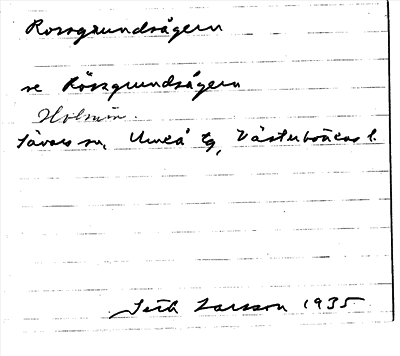 Rossgrundsågern
se Rösgrundsågern
Holmön.
Sävars sn, Umeå tg, Västerbottens l.
Seth Larsson 1935